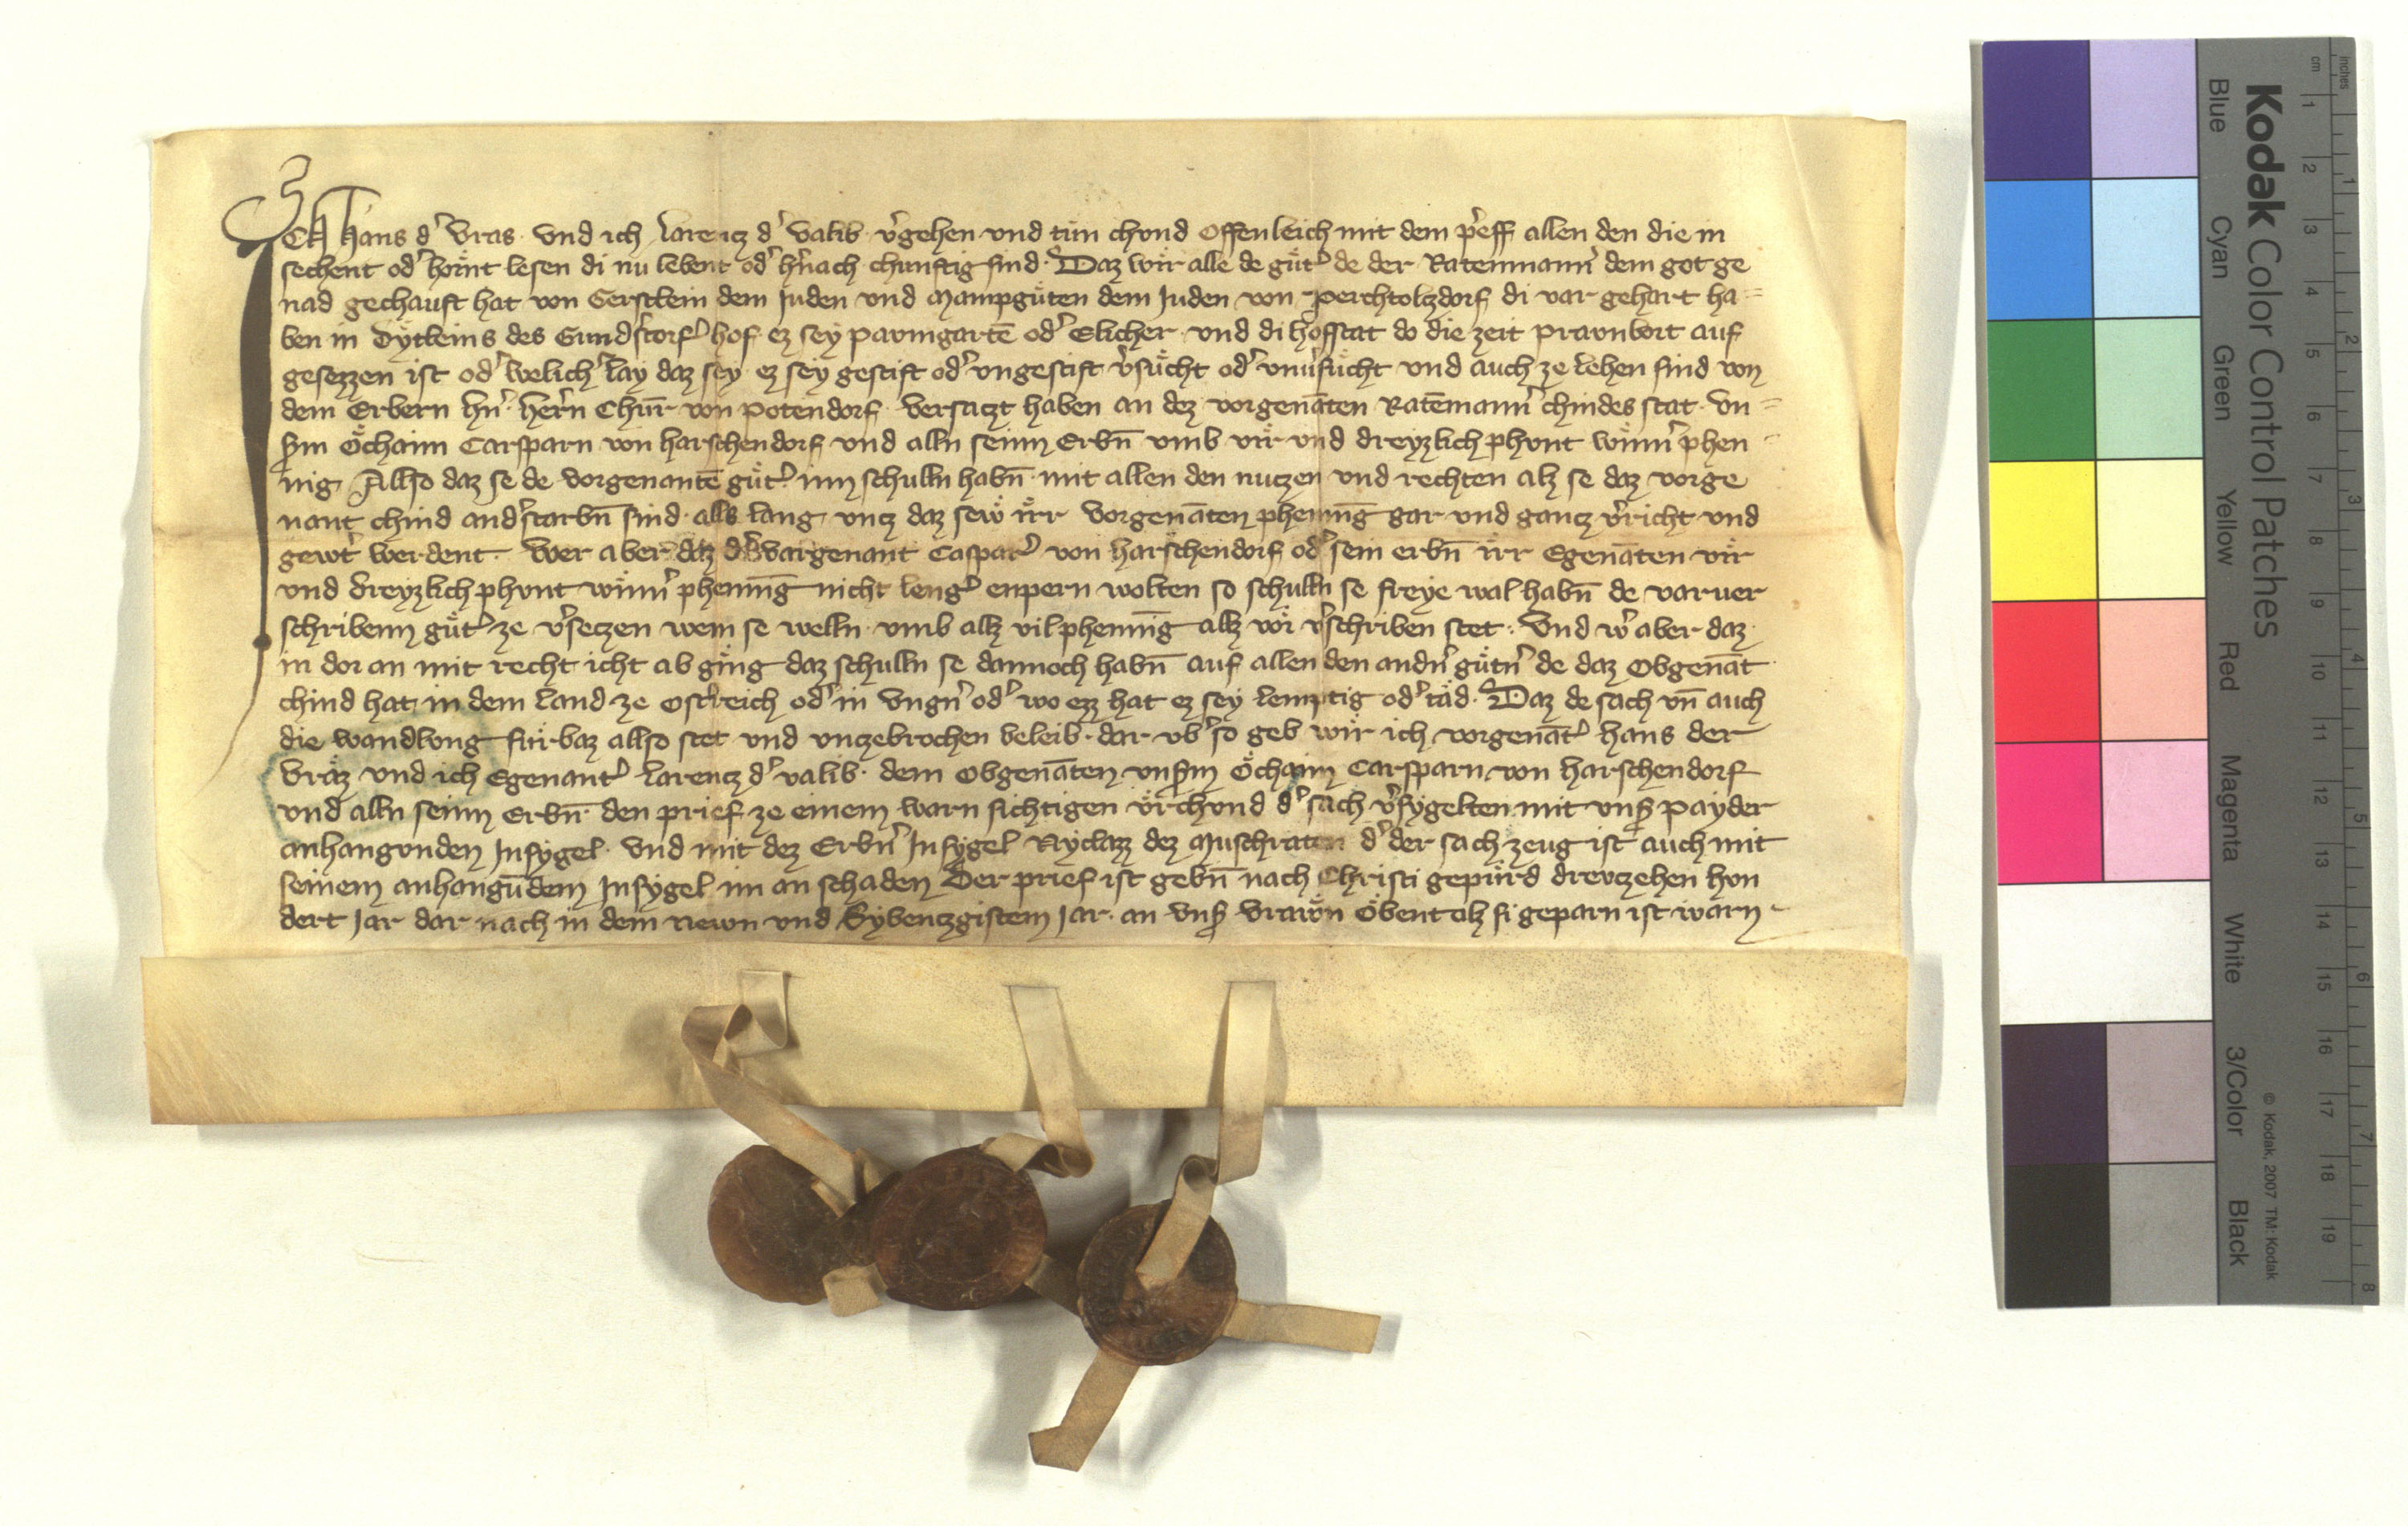 ICH hans d' Vras und ich Larencz d' valib v'gehen und tun chund Offenleich mit dem p'eff allen den die in
sechent od' hörnt lesen di nu lebent od' h'nach chunftig sind. Daz wir alle de güt' de der Ratenmann' dem got ge
nad gechauft hat von Gerstlein dem Juden und Mampguten dem Juden von perchtolczdorf di var gehart ha=
ben in Dytleins des Gund'storf' hof ez sey paumgartē od' Elicher und di hofstat do die zeit praunbort auf
gesezzen ist od' welich' lay daz sey ez sey gestift od' ungestift v'sücht od' unu'sücht und auch ze lehen sind von
dem Erbern hn' hern Chūr von potendorf versaczt haben an dez vorgenāten Ratēmann' chindes stat un=
s'm Öchaim Carsparn von harschendorf und alln seinn Erbn̄ umb vir und dreyzlich phunt winn' phen=
nig Allso daz se de vorgenantē güt' inn schulln habn̄ mit allen den nuczen und rechten alz se daz vorge
nant chind and'starbn̄ sind alls lang uncz daz sew irr vorgenāten phennīg gar und gancz v'richt und
gewt' werdent. Wer aber daz d' vargenant Caspar' von harschendorf od' sein erbn̄ irr Egenāten vir
und dreyzlich phunt winn' phennīg nicht leng' enpern wolten so schulln se freye wal habn̄ de varuer
schribenn güt' ze v'seczen wem se welln umb alz vil phennīg alz vor v'schriben stet. Und w' aber daz
in dor an mit recht icht ab ging daz schulln se dannoch habn̄ auf allen den andn' gütn' de daz Obgenāt
chind hat in dem land ze Ost'reich od' in ungn' od' wo ezz hat ez sey lemptig od' täd. Daz de sach un̄ auch
die wandlung fürbaz allso stet und unczebrochen beleib dar ub' so geb wir ich vorgenāt' hans der
Vräz und ich Egenant' Larencz d' valib dem Obgenāten uns'm Öchaim Carsparn von harschendorf
und alln seinn Erbn̄ den prief ze einem warn sichtigen ürchund d' sach v'sygelten mit uns' payder
anhangunden Insygel. Und mit dez Erbn' Insygel Nyclazz dez Muschraten d' der sach zeug ist auch mit
seinem anhangūdem Insygel im an schaden Der prief ist gebn̄ nach Christi gepürd dreuczehen hun
dert Jar dar nach in dem Newn und Sybenczgistem Jar an uns' vrawn Öbent alz si geparn ist warn
Kodak Color Control Patches
Blue Cyan Green Yellow Red Magenta White 3/Color Black
© Kodak, 2007 TM: Kodak
cm 1 2 3 4 5 6 7 8 9 10 11 12 13 14 15 16 17 18 19
inches 1 2 3 4 5 6 7 8